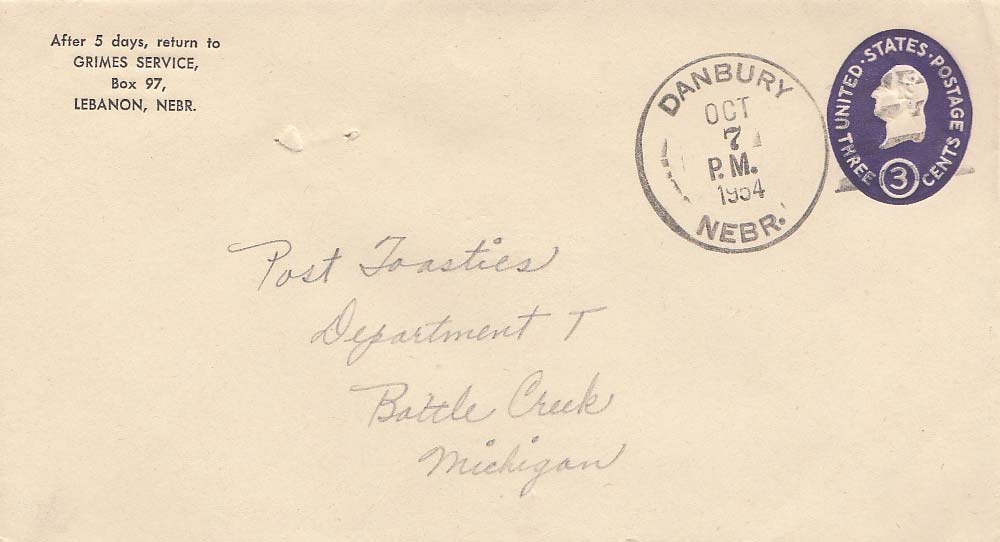 After 5 days, return to
GRIMES SERVICE,
Box 97,
LEBANON, NEBR.
DANBURY
OCT
7
P.M.
1954
NEBR.
UNITED·STATES·POSTAGE
THREE 3 CENTS
Post Toasties
Department T
Battle Creek
Michigan